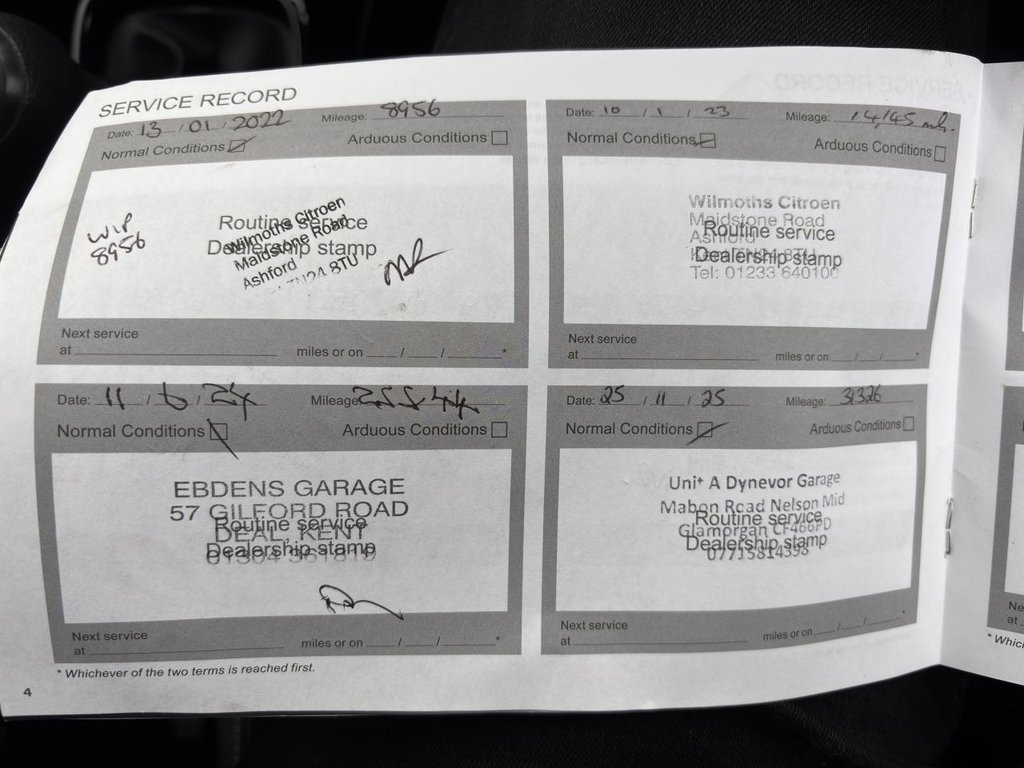 SERVICE RECORD
Date: 13 / 01 / 2022 Mileage: 8956
Normal Conditions Arduous Conditions
WIP
8956
Routine service
Dealership stamp
Wilmoths Citroen
Maidstone Road
Ashford
TN24 8TU
Next service
at miles or on / / *
Date: 10 / 1 / 23 Mileage: 14,145 mls.
Normal Conditions Arduous Conditions
Wilmoths Citroen
Maidstone Road
Ashford
Kent TN24 8TU
Tel: 01233 640100
Routine service
Dealership stamp
Next service
at miles or on / / *
Date: 11 / 6 / 24 Mileage:
Normal Conditions Arduous Conditions
EBDENS GARAGE
57 GILFORD ROAD
DEAL, KENT
01304 361819
Routine service
Dealership stamp
Next service
at miles or on / / *
Date: 25 / 11 / 25 Mileage: 31326
Normal Conditions Arduous Conditions
Unit A Dynevor Garage
Mabon Road Nelson Mid
Glamorgan CF466PD
07715814398
Routine service
Dealership stamp
Next service
at miles or on / / *
* Whichever of the two terms is reached first.
4